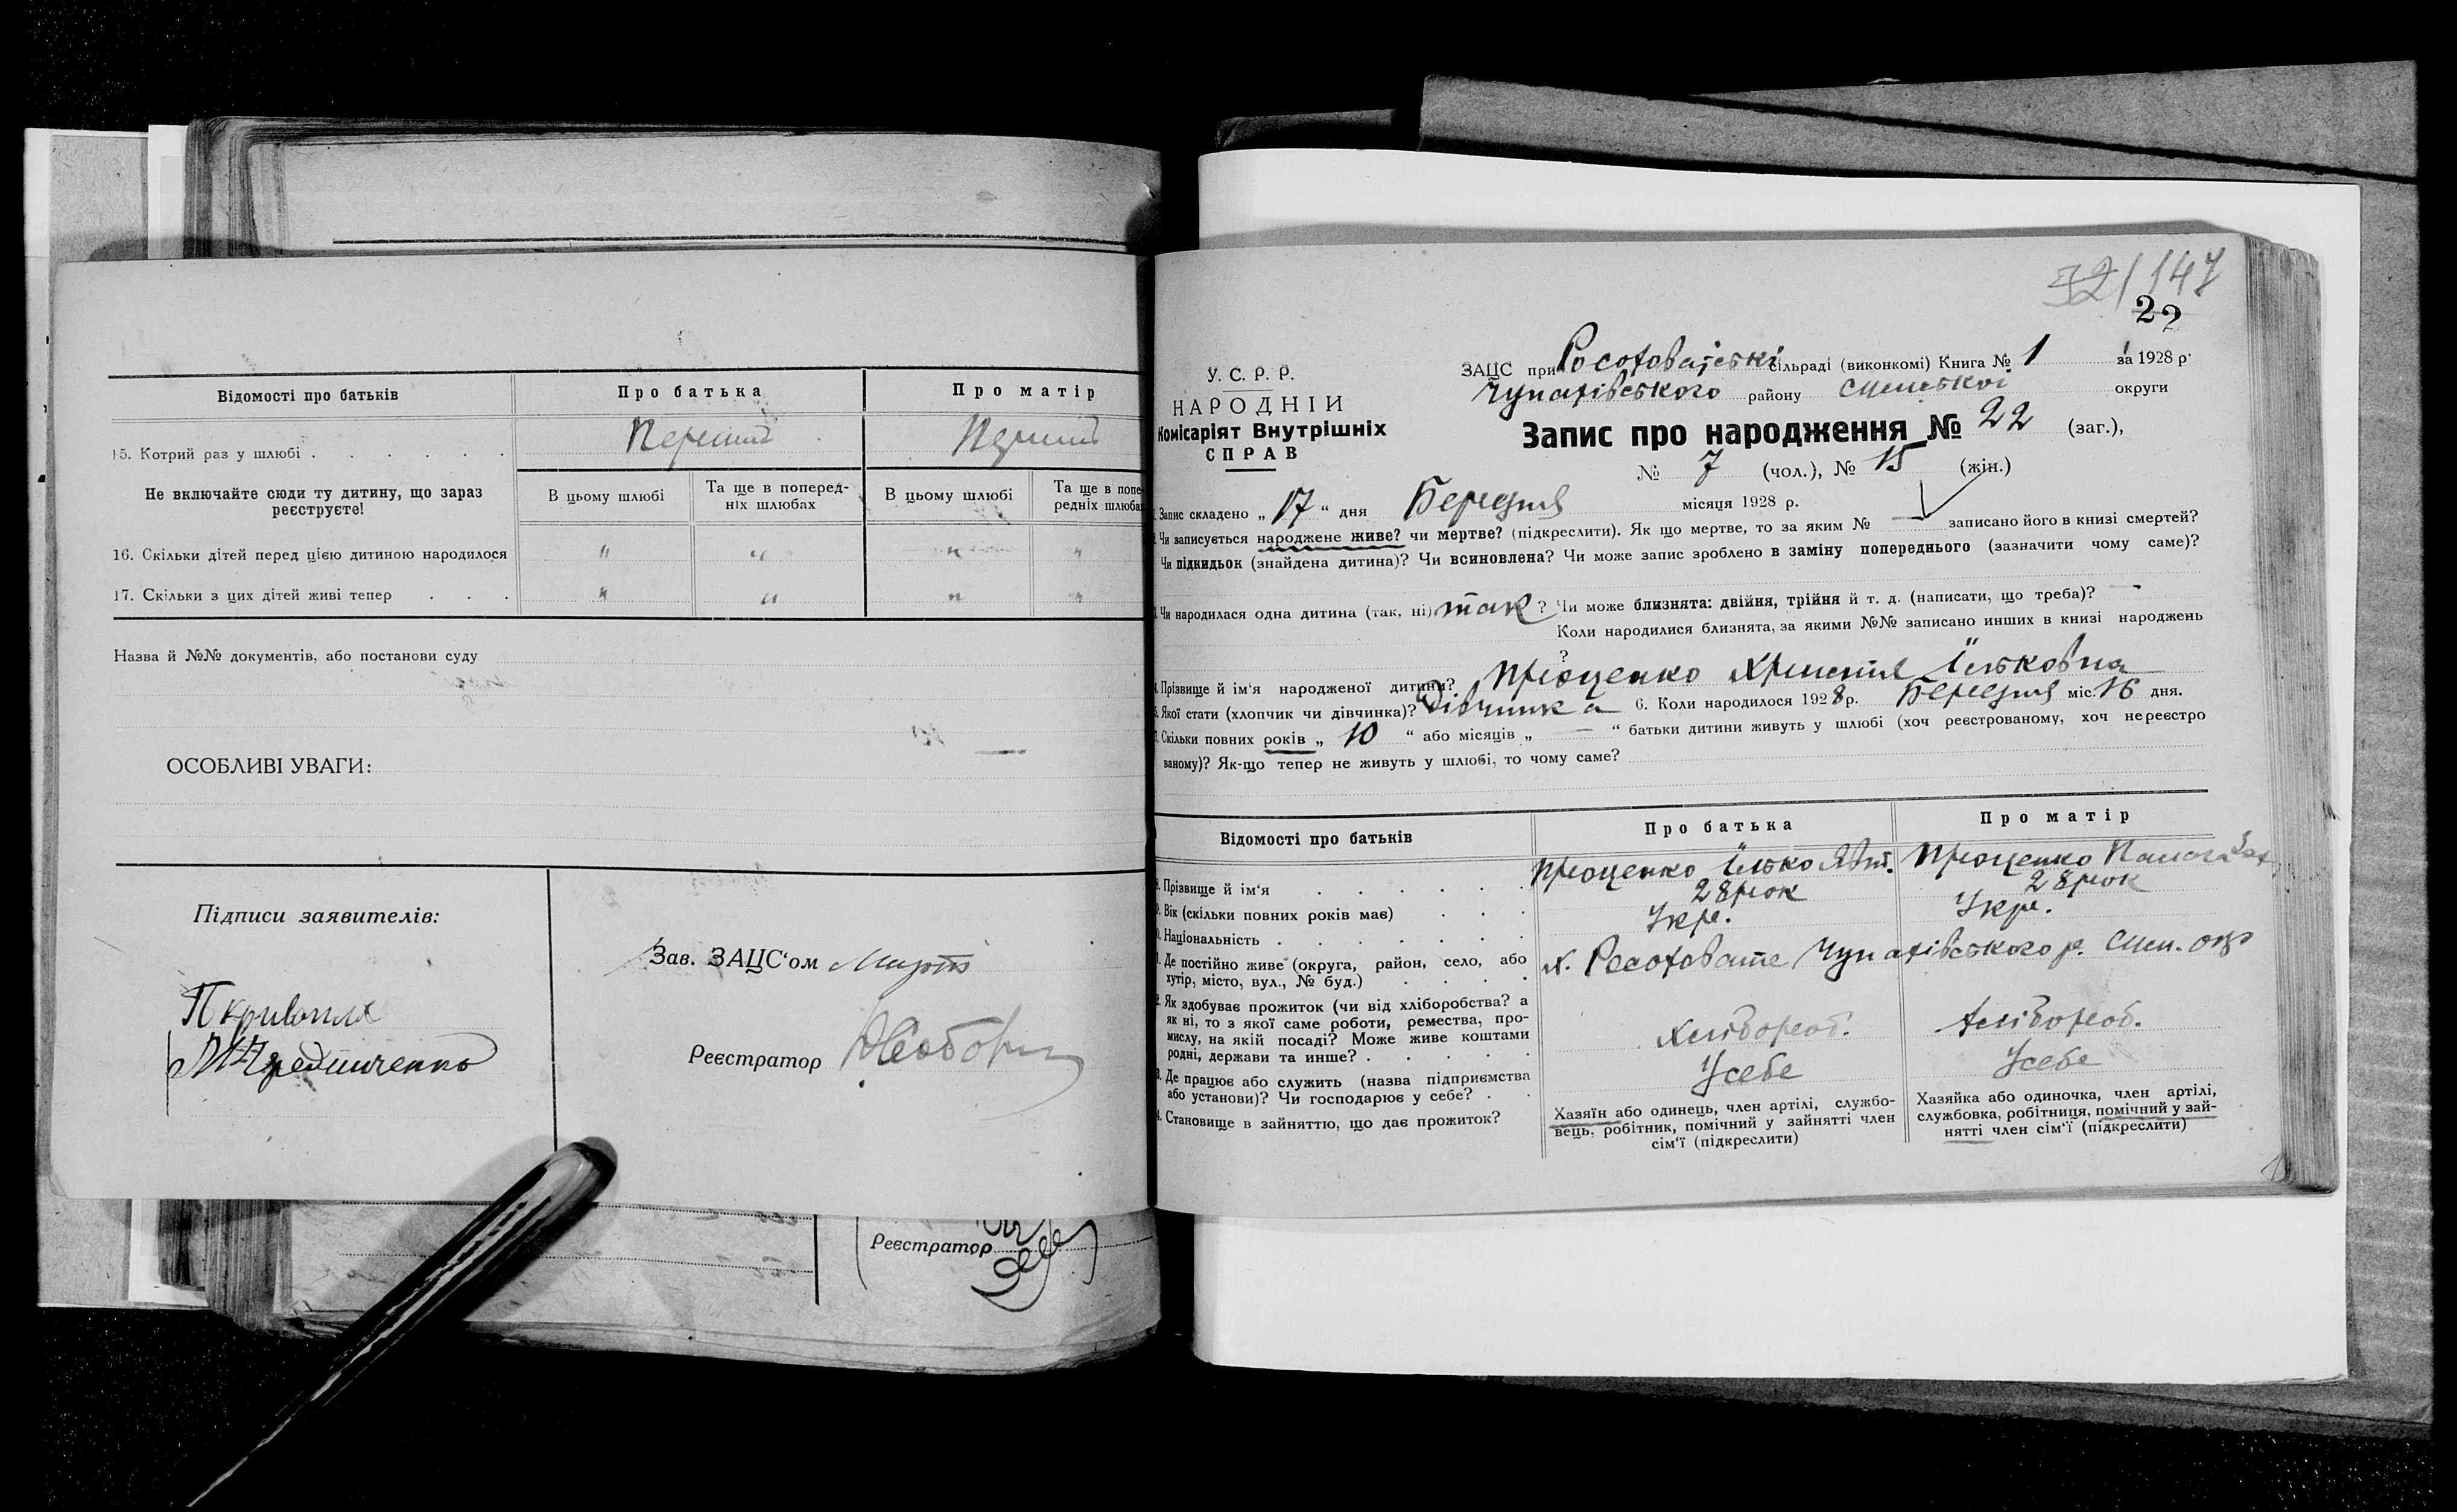 Відомості про батьків Про батька Про матір
15. Котрий раз у шлюбі . . . . . . Перший Перший
Не включайте сюди ту дитину, що зараз реєструєте!
В цьому шлюбі Та ще в поперед-
ніх шлюбах
В цьому шлюбі Та ще в попе-
редніх шлюбах
16. Скільки дітей перед цією дитиною народилося " " " "
17. Скільки з цих дітей живі тепер . . . " " " "
Назва й №№ документів, або постанови суду
ОСОБЛИВІ УВАГИ:
Підписи заявителів:
Зав. ЗАЦС'ом
Реєстратор
Реєстратор
32/147
22
У. С. Р. Р.
НАРОДНІЙ
Комісаріят Внутрішніх
СПРАВ
ЗАЦС при Росоховатській сільраді (виконкомі) Книга № 1 за 1928 р.
Чупахівського району Сумської округи
Запис про народження № 22 (заг.),
№ 7 (чол.), № 15 (жін.)
Запис складено „ 17 “ дня Березня місяця 1928 р.
Чи записується народжене живе? чи мертве? (підкреслити). Як що мертве, то за яким № — записано його в книзі смертей?
Чи підкидьок (знайдена дитина)? Чи всиновлена? Чи може запис зроблено в заміну попереднього (зазначити чому саме)?
Чи народилася одна дитина (так, ні) так ? Чи може близнята: двійня, трійня й т. д. (написати, що треба)? —
Коли народилися близнята, за якими №№ записано инших в книзі народжень
?
Прізвище й ім'я народженої дитини? Проценко Христя Ільковна
Якої стати (хлопчик чи дівчинка)? Дівчинка 6. Коли народилося 1928 р. Березня міс. 16 дня.
Скільки повних років „ 10 “ або місяців „ — “ батьки дитини живуть у шлюбі (хоч реєстрованому, хоч нереєстро
ваному)? Як-що тепер не живуть у шлюбі, то чому саме?
Відомості про батьків Про батька Про матір
Прізвище й ім'я . . . . . . Проценко Ілько Проценко
Вік (скільки повних років має) . . . 28 рок 28 рок
Національність . . . . . . . Укр. Укр.
Де постійно живе (округа, район, село, або
хутір, місто, вул., № буд.) . . . . х. Росоховате Чупахівського р. Сум. окр
Як здобуває прожиток (чи від хліборобства? а
як ні, то з якої саме роботи, ремества, про-
мислу, на якій посаді? Може живе коштами
родні, держави та инше? . . . . . Хлібороб. Хлібороб.
Де працює або служить (назва підприємства
або установи)? Чи господарює у себе? . . Усебе Усебе
Становище в зайняттю, що дає прожиток?
Хазяїн або одинець, член артілі, службо-
вець, робітник, помічний у зайнятті член
сім'ї (підкреслити)
Хазяйка або одиночка, член артілі,
службовка, робітниця, помічний у зай-
нятті член сім'ї (підкреслити)